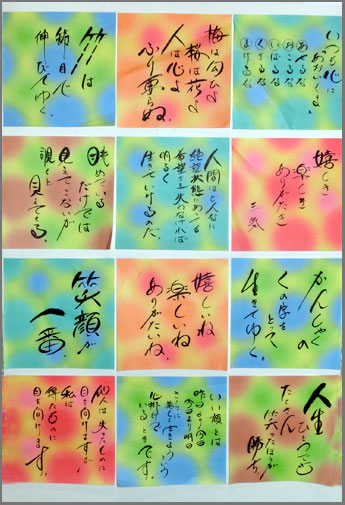 いつも心に
あおいくま
あせるな
おこるな
いばるな
くさるな
まけるな
梅は匂ひよ
桜は花よ
人は心よ
ふり要らぬ
竹は
節目で
伸びてゆく。
嬉しき
楽しき
ありがたき
三気
人間はどんなに
絶望状態にあっても
希望さえ失わなければ
明るく
生きていけるのだ。
眺めている
だけでは
見えてこないが
視ると
見えてくる。
かんしゃく
くの字を
とって、
生きてゆく。
嬉しいね
楽しいね
ありがたいね。
笑顔が
一番。
人生
ひとつでも
たくさん
笑ったほうが
勝ち。
いい顔とは
昨日より今日
今日より明日
美しく生きようという
いるときです。
他人は失ったものに
目を向けますが
私は
得たものに
目を向けます。